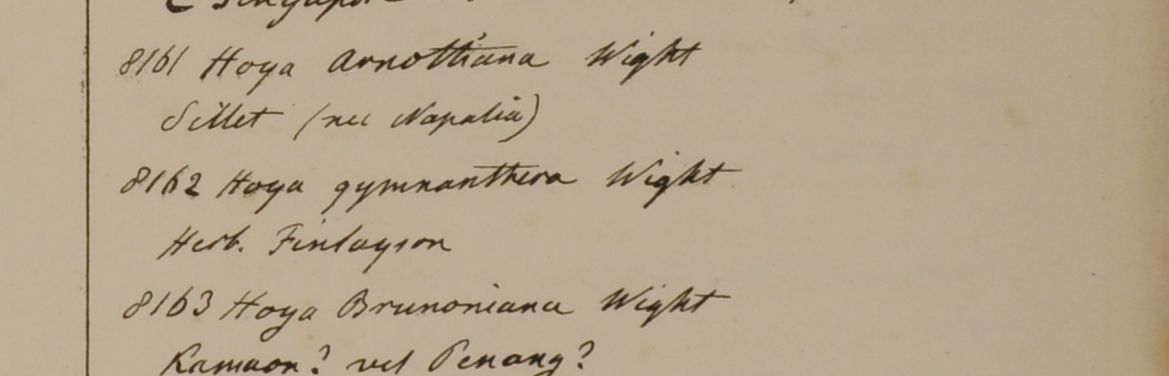 C Singapore
8161 Hoya Arnottiana Wight
Sillet (nec Napalia)
8162 Hoya gymnanthera Wight
Herb. Finlayson
8163 Hoya Brunoniana Wight
Kamaon? vel Penang?